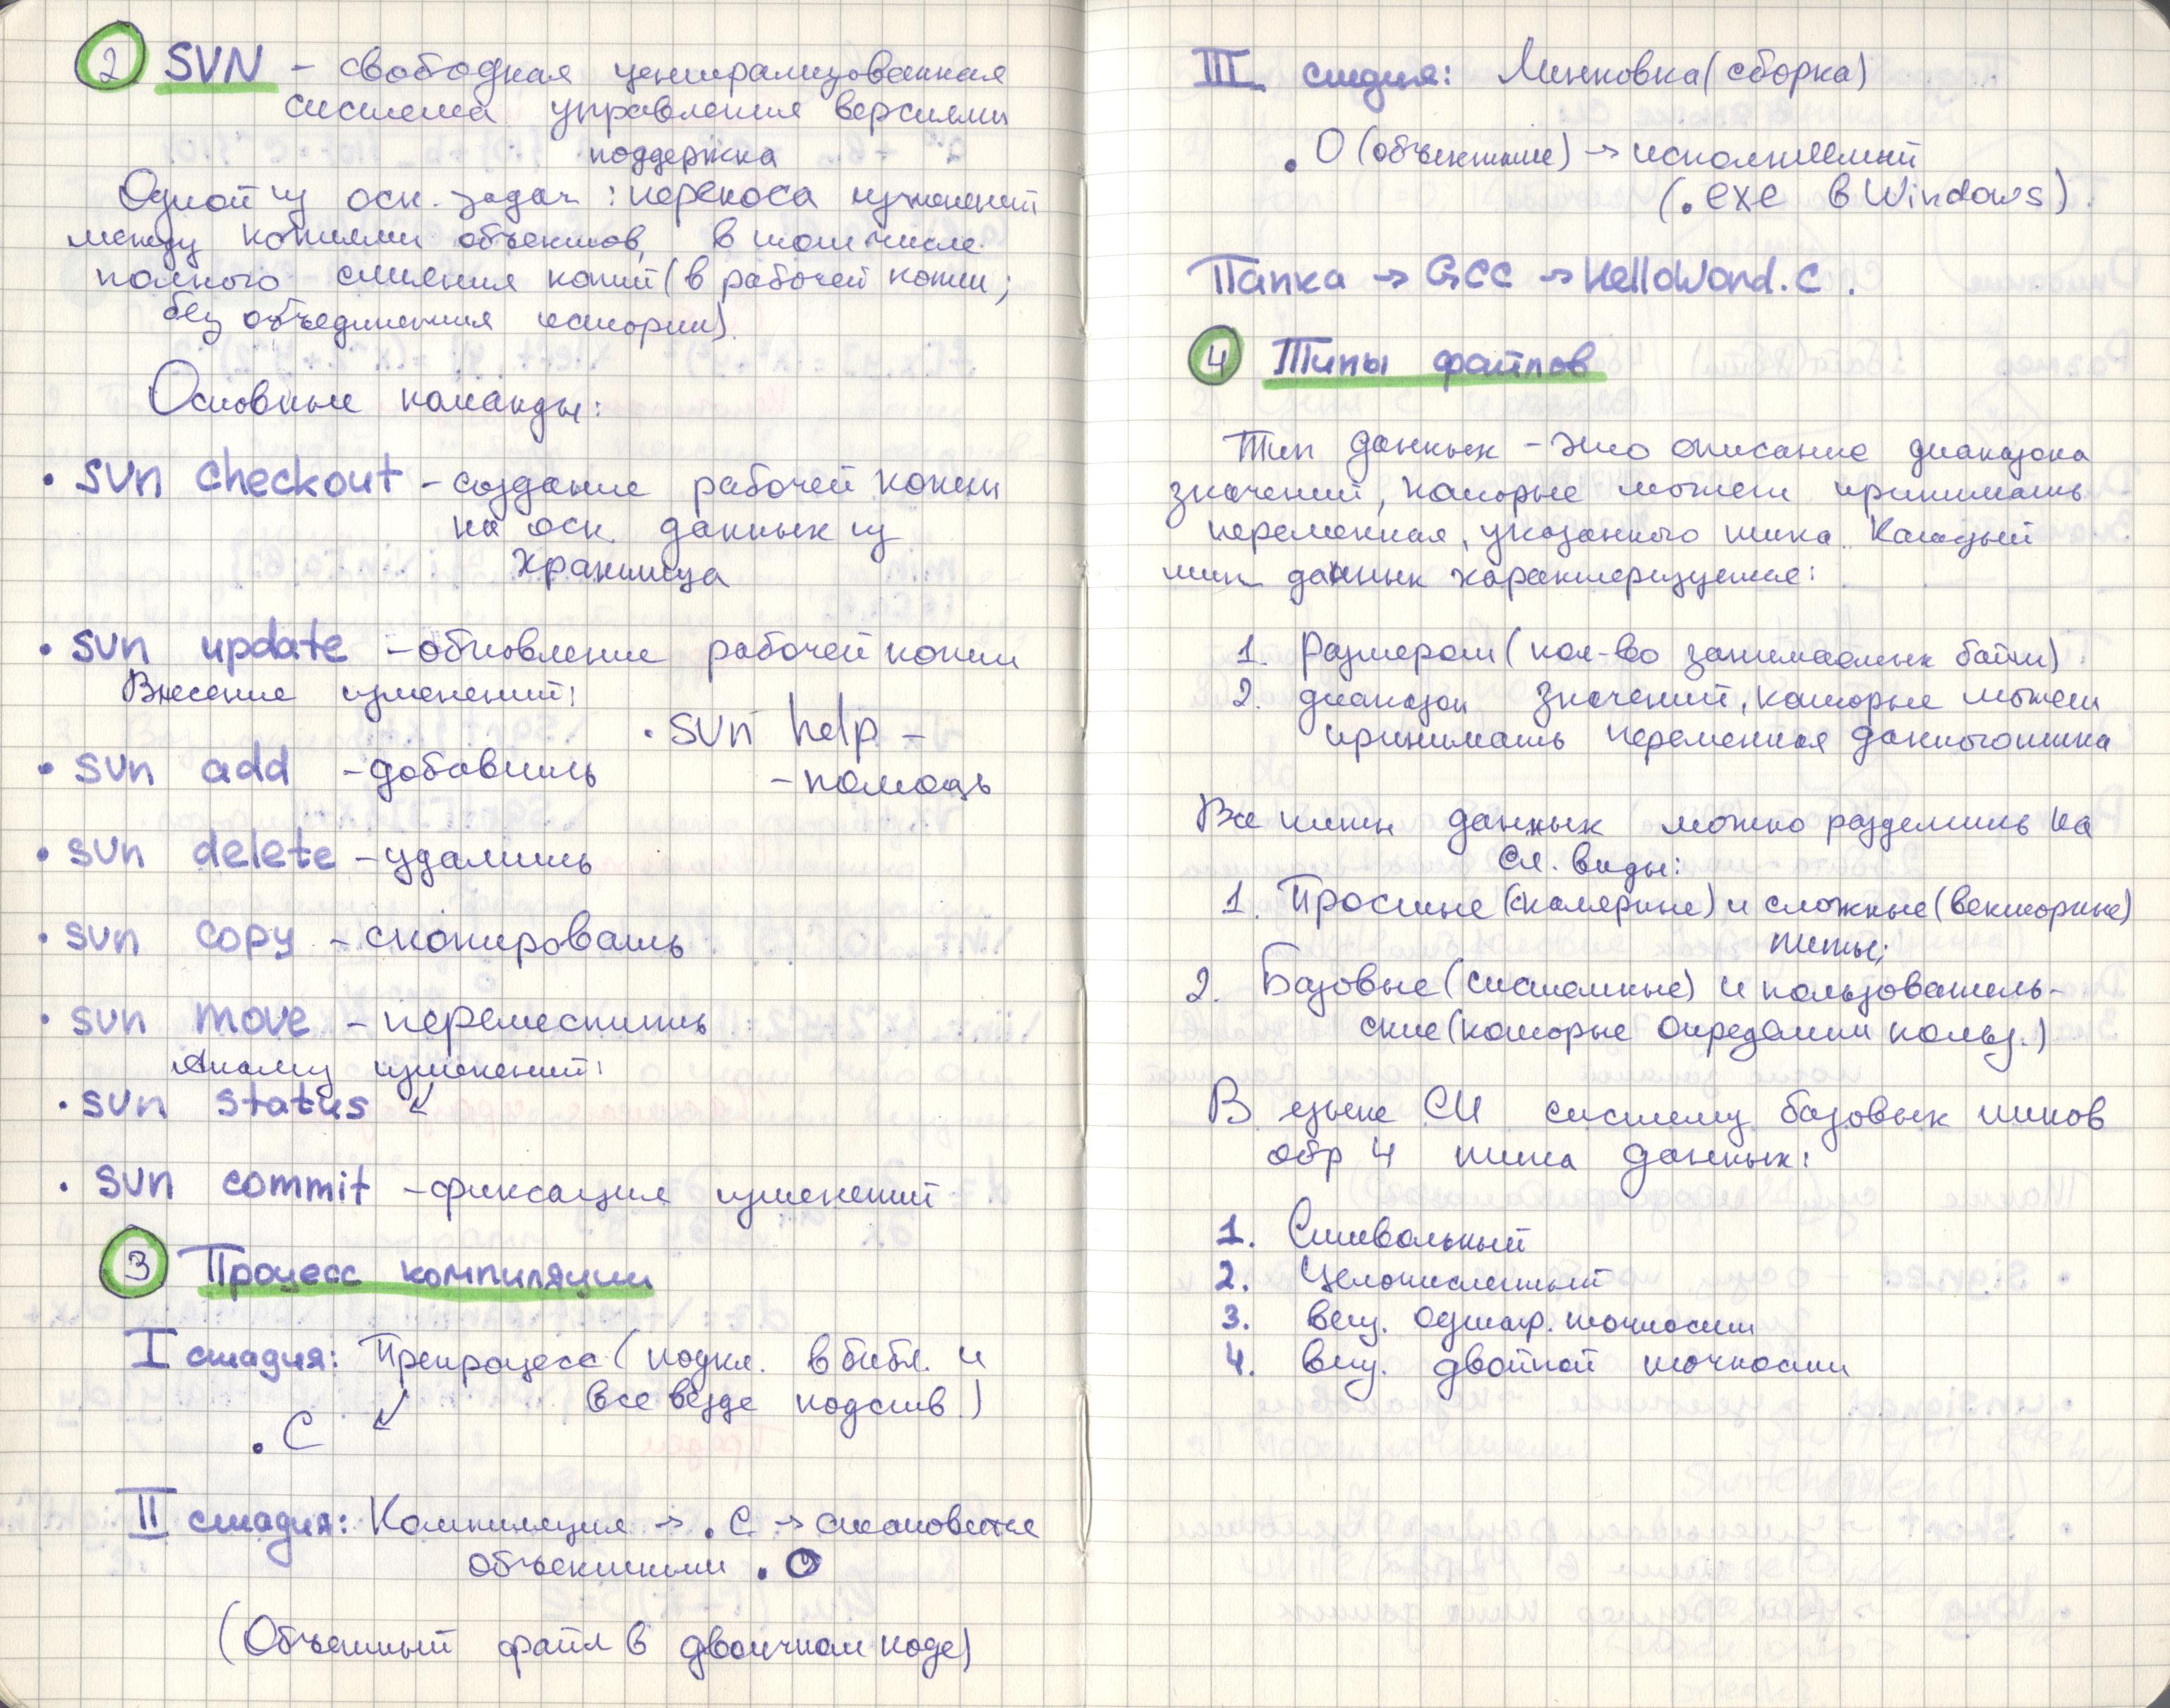 2 SVN – свободная централизованная
система управления версиями
поддержка
Одной из осн. задач: переноса изменений
между копиями объектов, в том числе
полного слияния копий (в рабочей копии;
без объединения истории).
Основные команды:
• svn checkout – создание рабочей копии
на осн. данных из
Хранилища
• svn update – обновление рабочей копии
Внесение изменений:
• svn help –
– помощь
• svn add – добавить
• svn delete – удалить
• svn copy – скопировать
• svn move – переместить
Анализ изменений:
• svn status ↙
• svn commit – фиксация изменений
3 Процесс компиляции
I стадия: Препроцесс (подкл. в библ. и
все везде подстав.)
↙
.C
II стадия: Компиляция → .C → становится
объектными .O
(Объектный файл в двоичном коде)
III стадия: Линковка (сборка)
.O (объектные) → исполняемый
(.exe в Windows)
Папка → GCC → HelloWord.C.
4 Типы файлов
Тип данных – это описание диапазона
значений, которые может принимать
переменная, указанного типа. Каждый
тип данных характеризуется:
1. Размером (кол-во занимаемых байт)
2. диапазон значений, которые может
принимать переменная данного типа
Все типы данных можно разделить на
сл. виды:
1. Простые (скалярные) и сложные (векторные)
типы;
2. Базовые (системные) и пользователь-
ские (которые определили польз.)
В языке СИ систему базовых типов
обр 4 типа данных:
1. Символьный
2. Целочисленный
3. вещ. одинар. точности
4. вещ. двойной точности